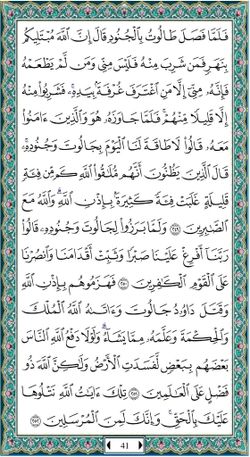 فَلَمَّا فَصَلَ طَالُوتُ بِٱلْجُنُودِ قَالَ إِنَّ ٱللَّهَ مُبْتَلِيكُم
بِنَهَرٍ فَمَن شَرِبَ مِنْهُ فَلَيْسَ مِنِّى وَمَن لَّمْ يَطْعَمْهُ
فَإِنَّهُۥ مِنِّىٓ إِلَّا مَنِ ٱغْتَرَفَ غُرْفَةًۢ بِيَدِهِۦۚ فَشَرِبُوا۟ مِنْهُ
إِلَّا قَلِيلًا مِّنْهُمْۚ فَلَمَّا جَاوَزَهُۥ هُوَ وَٱلَّذِينَ ءَامَنُوا۟
مَعَهُۥ قَالُوا۟ لَا طَاقَةَ لَنَا ٱلْيَوْمَ بِجَالُوتَ وَجُنُودِهِۦۚ
قَالَ ٱلَّذِينَ يَظُنُّونَ أَنَّهُم مُّلَٰقُوا۟ ٱللَّهِ كَم مِّن فِئَةٍ
قَلِيلَةٍ غَلَبَتْ فِئَةً كَثِيرَةًۢ بِإِذْنِ ٱللَّهِۗ وَٱللَّهُ مَعَ
ٱلصَّٰبِرِينَ ٢٤٩ وَلَمَّا بَرَزُوا۟ لِجَالُوتَ وَجُنُودِهِۦ قَالُوا۟
رَبَّنَآ أَفْرِغْ عَلَيْنَا صَبْرًا وَثَبِّتْ أَقْدَامَنَا وَٱنصُرْنَا
عَلَى ٱلْقَوْمِ ٱلْكَٰفِرِينَ ٢٥٠ فَهَزَمُوهُم بِإِذْنِ ٱللَّهِ
وَقَتَلَ دَاوُۥدُ جَالُوتَ وَءَاتَىٰهُ ٱللَّهُ ٱلْمُلْكَ
وَٱلْحِكْمَةَ وَعَلَّمَهُۥ مِمَّا يَشَآءُۗ وَلَوْلَا دَفْعُ ٱللَّهِ ٱلنَّاسَ
بَعْضَهُم بِبَعْضٍ لَّفَسَدَتِ ٱلْأَرْضُ وَلَٰكِنَّ ٱللَّهَ ذُو
فَضْلٍ عَلَى ٱلْعَٰلَمِينَ ٢٥١ تِلْكَ ءَايَٰتُ ٱللَّهِ نَتْلُوهَا
عَلَيْكَ بِٱلْحَقِّۚ وَإِنَّكَ لَمِنَ ٱلْمُرْسَلِينَ ٢٥٢
41